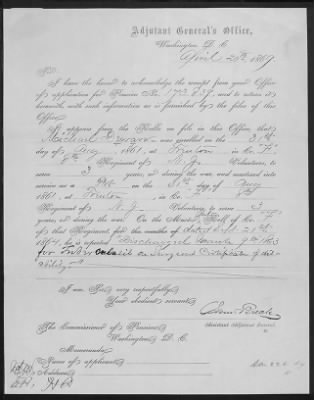 Adjutant General's Office,
Washington, D. C.
April 20th, 1869.
Sir:
I have the honor to acknowledge the receipt from your Office
of application for Pension No. 172.627, and to return it
herewith, with such information as is furnished by the files of this
Office.
It appears from the Rolls on file in this Office, that
Michael was enrolled on the
day of Aug, 1861, at Trenton, in Co.
8th Regiment of N. J. Volunteers, to
serve 3 years, or during the war, and mustered into
service as a on the 31st day of Aug
1861, at Trenton, in Co.
Regiment of N. J. Volunteers, to serve 3
years, or during the war. On the Muster Roll of Co.
of that Regiment, for the months of
1864, he is reported Discharged March 9th 1863
for Tuberculosis on Surgeon's Certificate of dis-
ability.
I am, Sir, very respectfully,
Your obedient servant,
Assistant Adjutant General.
The Commissioner of Pensions,
Washington, D. C.
Memoranda:
Name of applicant,
Address,